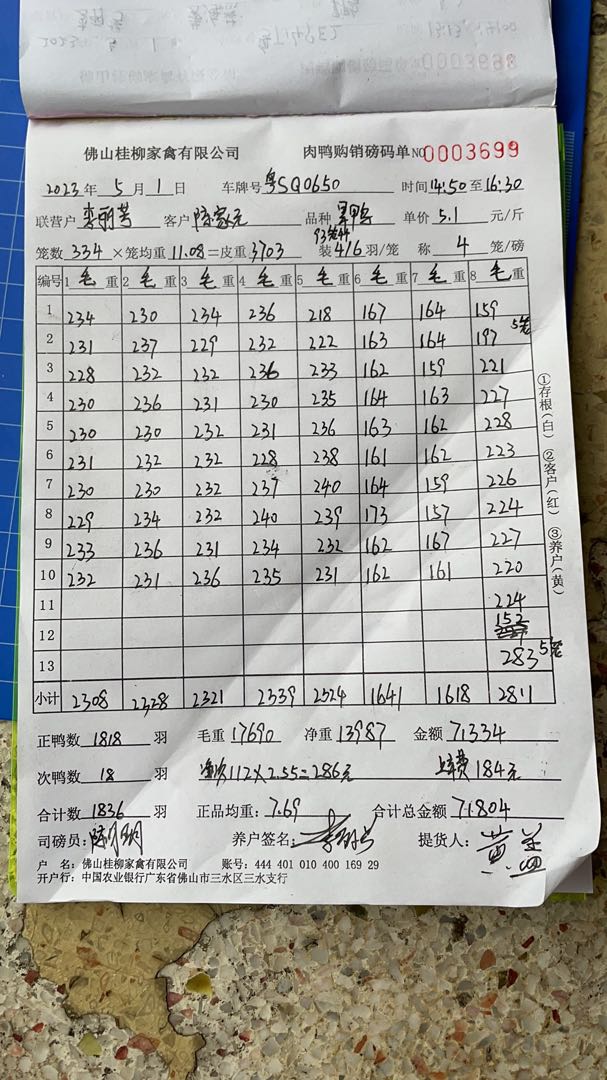 0003698
佛山桂柳家禽有限公司 肉鸭购销磅码单 NO 0003699
2023年 5月 1日 车牌号 粤SQ0650 时间 14:50 至 16:30
联营户 李丽芳 客户 陈家元 品种 单价 5.1 元/斤
笼数 334 ×笼均重 11.08 =皮重 3703 装 4/6 羽/笼 称 4 笼/磅
编号 1 毛重 2 毛重 3 毛重 4 毛重 5 毛重 6 毛重 7 毛重 8 毛重
1 234 230 234 236 218 167 164 159
2 231 237 229 232 222 163 164 197 5笼
3 228 232 232 236 233 162 159 221
4 230 236 231 230 235 164 163 227
5 230 230 232 231 236 163 162 228
6 231 232 232 228 238 161 162 223
7 230 230 232 237 240 164 159 226
8 229 234 232 240 239 173 157 224
9 233 236 231 234 232 162 167 227
10 232 231 236 235 231 162 161 220
11 224
12 152
13 283 5笼
小计 2308 2328 2321 2339 2324 1641 1618 2811
正鸭数 1818 羽 毛重 17690 净重 13987 金额 71334
次鸭数 18 羽 112×2.55=286元 上车费184元
合计数 1836 羽 正品均重: 7.69 合计总金额 71.804
司磅员: 养户签名: 提货人:
户 名: 佛山桂柳家禽有限公司 账号: 444 401 010 400 169 29
开户行: 中国农业银行广东省佛山市三水区三水支行
①存根(白) ②客户(红) ③养户(黄)